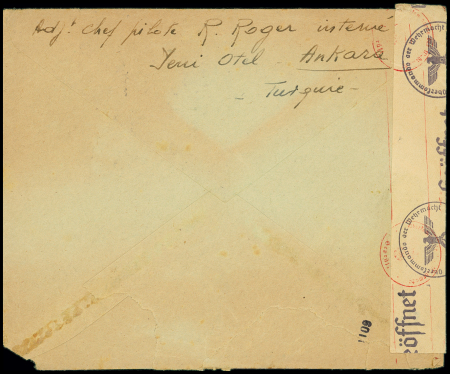 Adjt chef pilote R. Roger interné
Yeni Otel Ankara
- Turquie -
Oberkommando der Wehrmacht
Oberkommando der Wehrmacht
eöffnet
1109